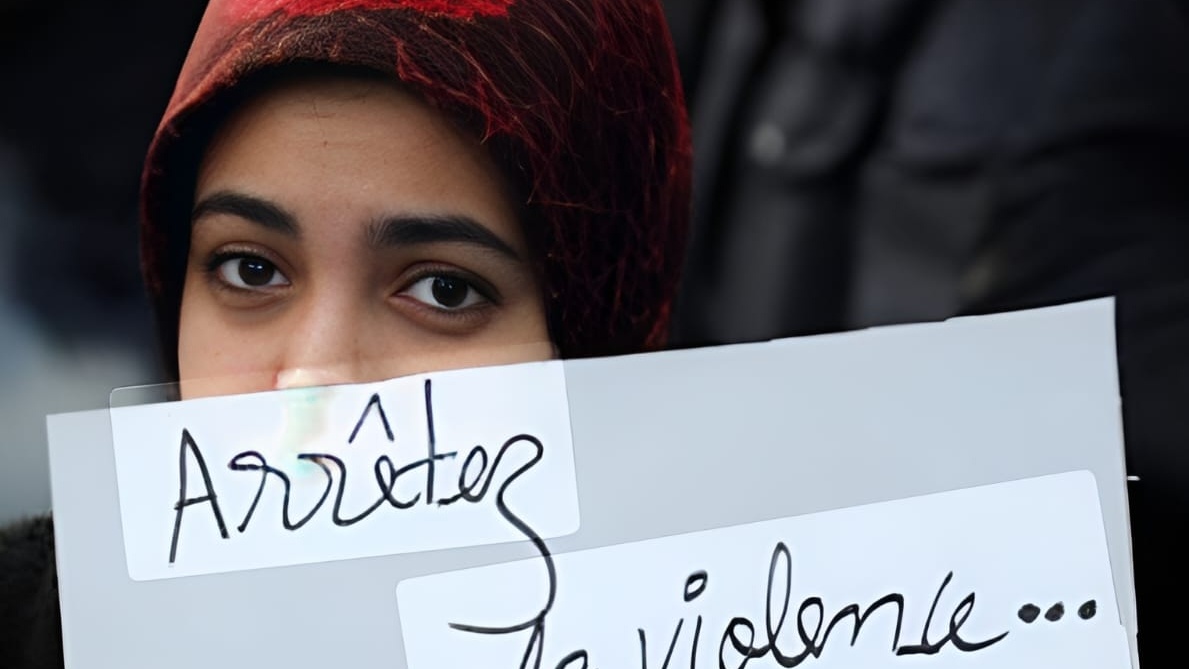 Arrêtez
la violence...